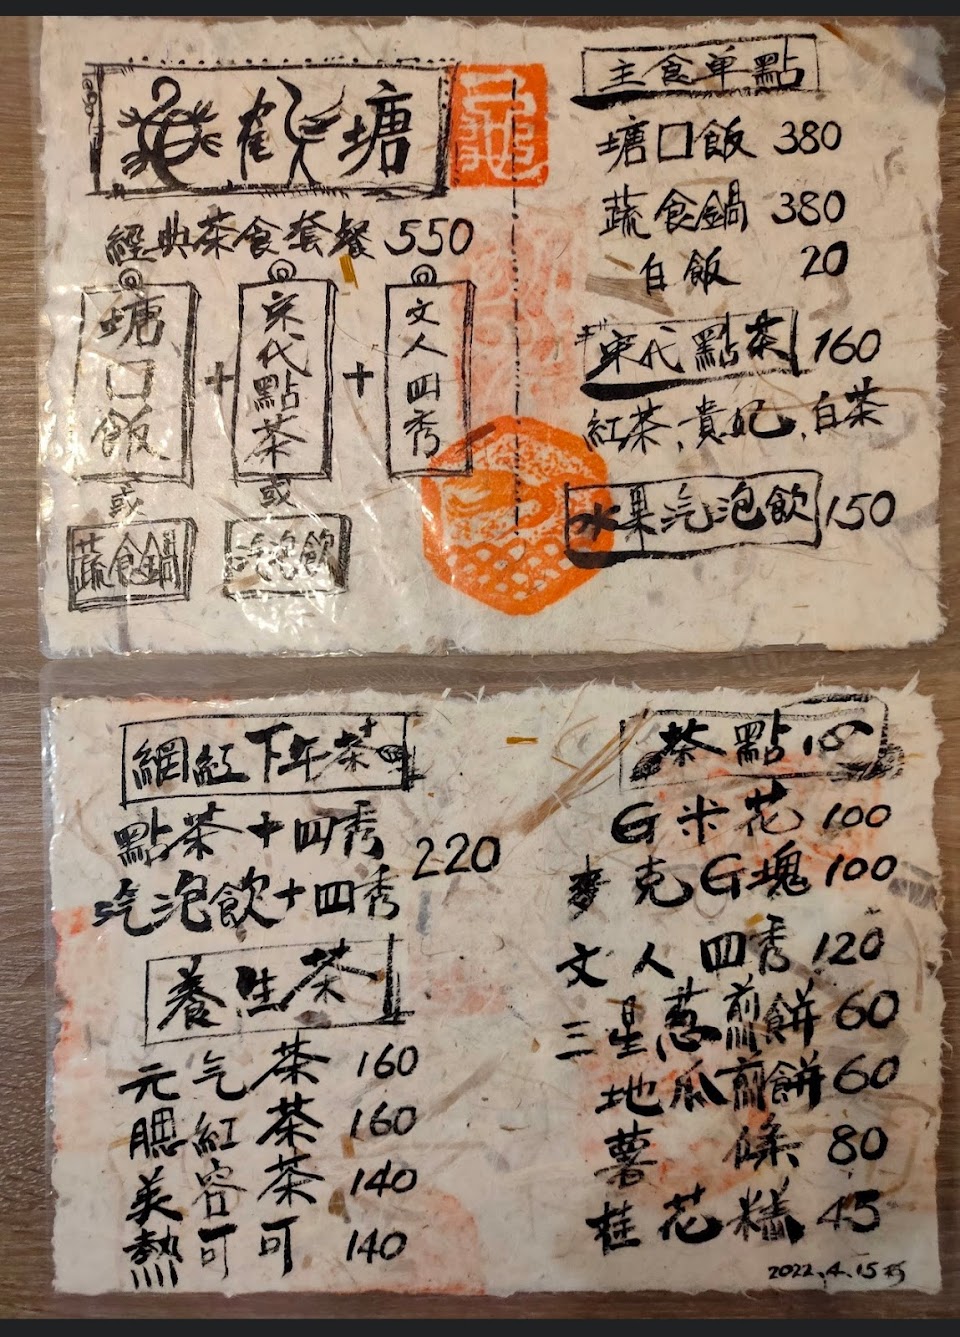 塘
經典茶食套餐 550
塘口飯 + 宋代點茶 + 文人四秀
或 或
蔬食鍋 汽泡飲
主食单點
塘口飯 380
蔬食鍋 380
白飯 20
宋代點茶 160
紅茶、貴妃、白茶
水果汽泡飲 150
網紅下午茶
點茶+四秀
汽泡飲+四秀
220
養生茶
元气茶 160
腮紅茶 160
美容茶 140
熱可可 140
茶點心
G米花 100
麥克G塊 100
文人四秀 120
三星蔥煎餅 60
地瓜煎餅 60
薯條 80
桂花糕 45
2022.4.15